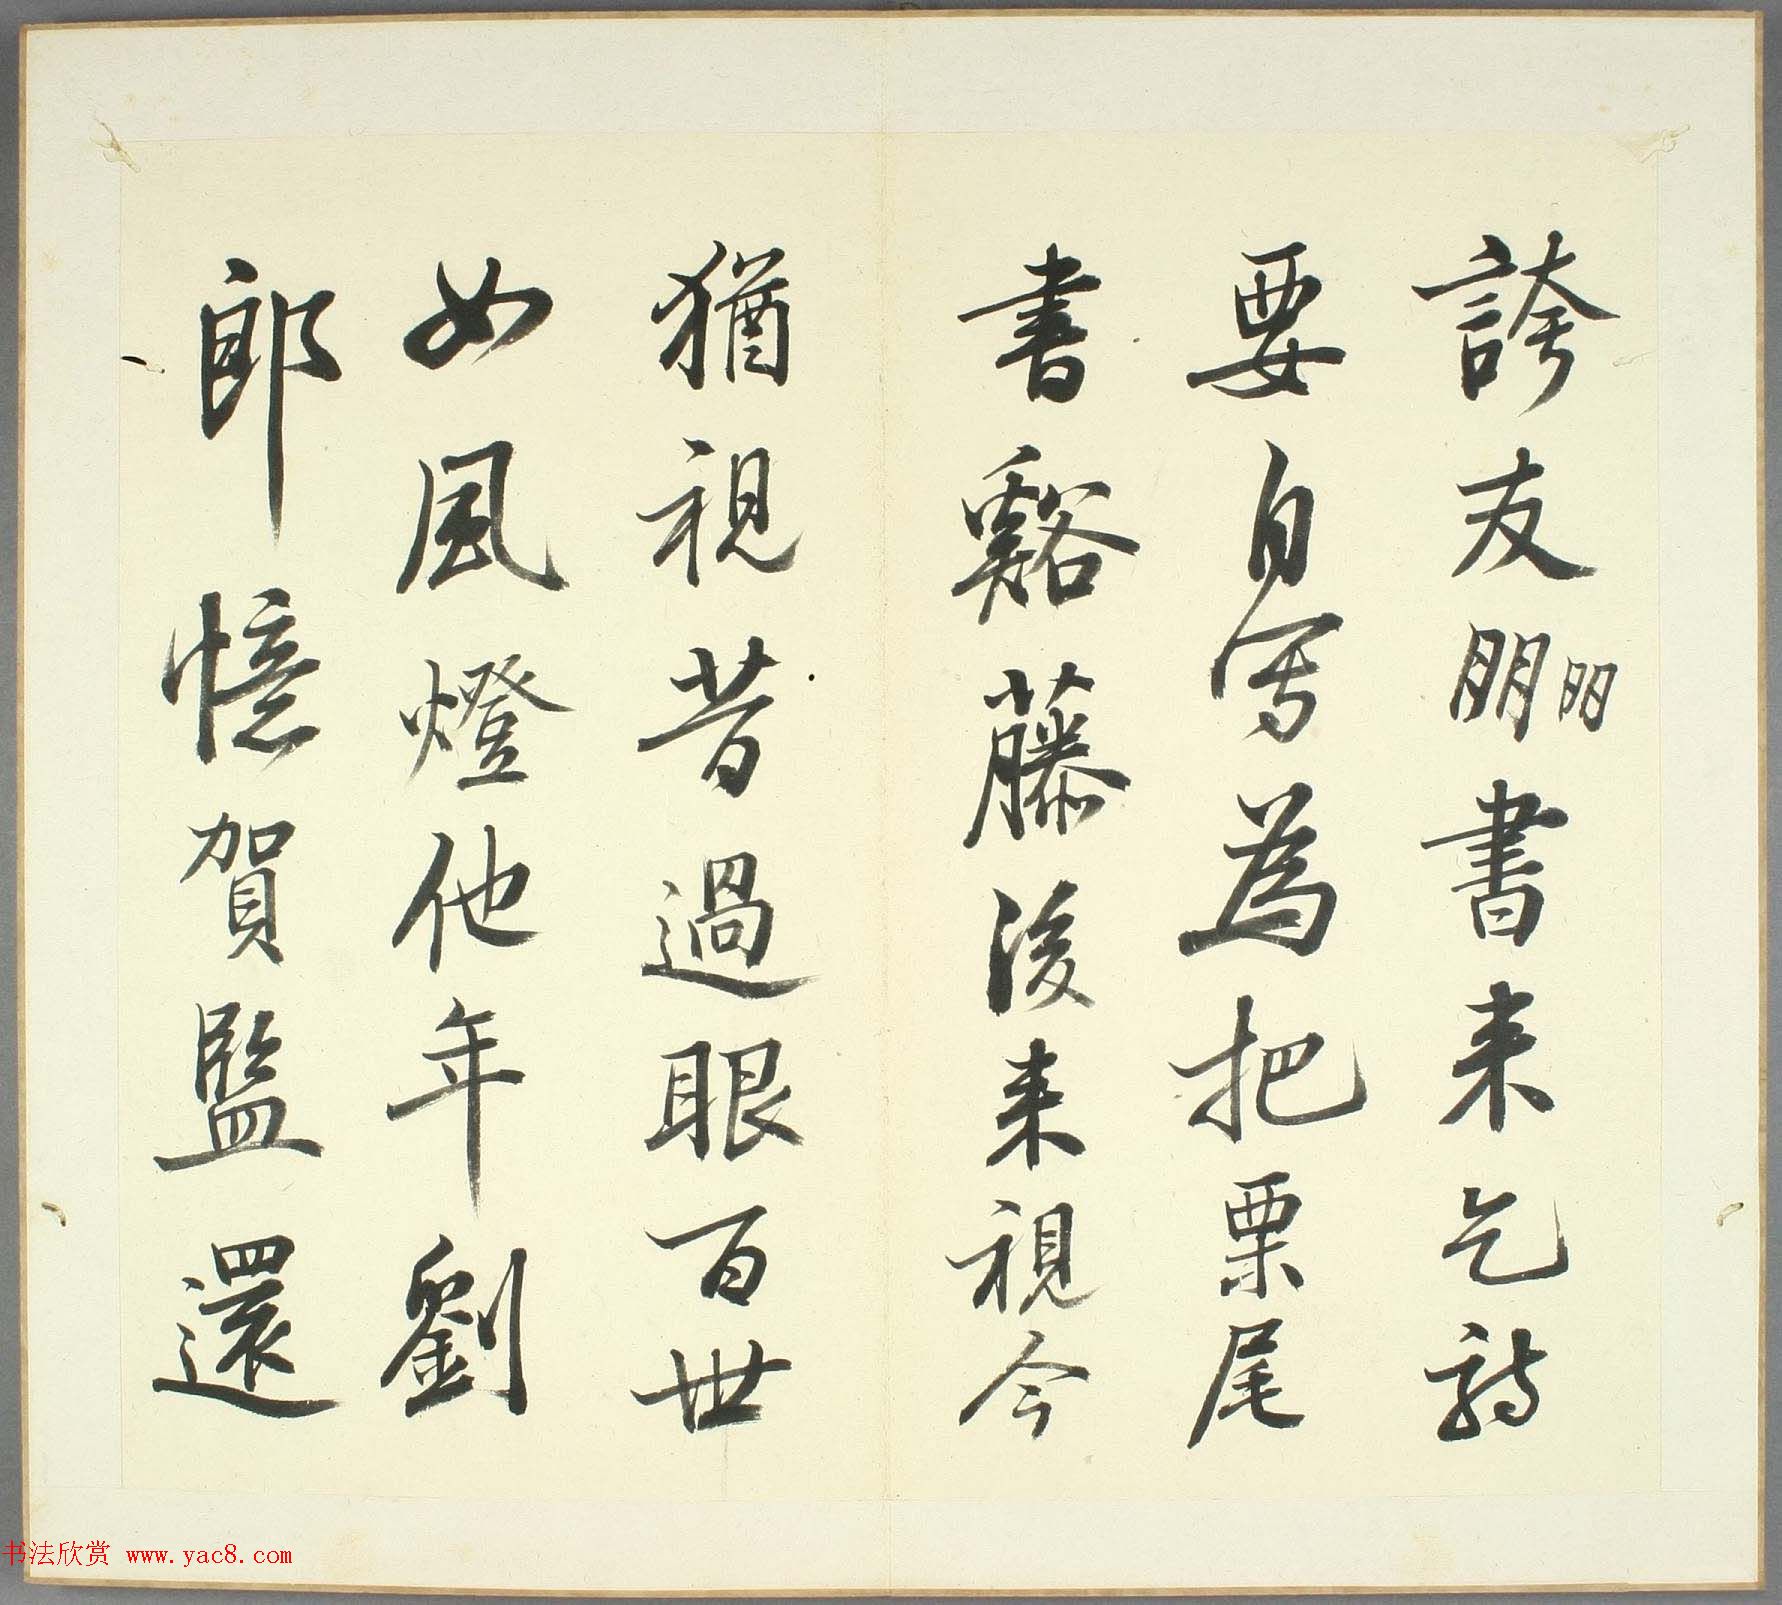 誇友朋書来乞詩
朋
要自写為把栗尾
書谿藤後来視今
猶視昔過眼百世
如風燈他年劉
郎憶賀監還
书法欣赏 www.yac8.com